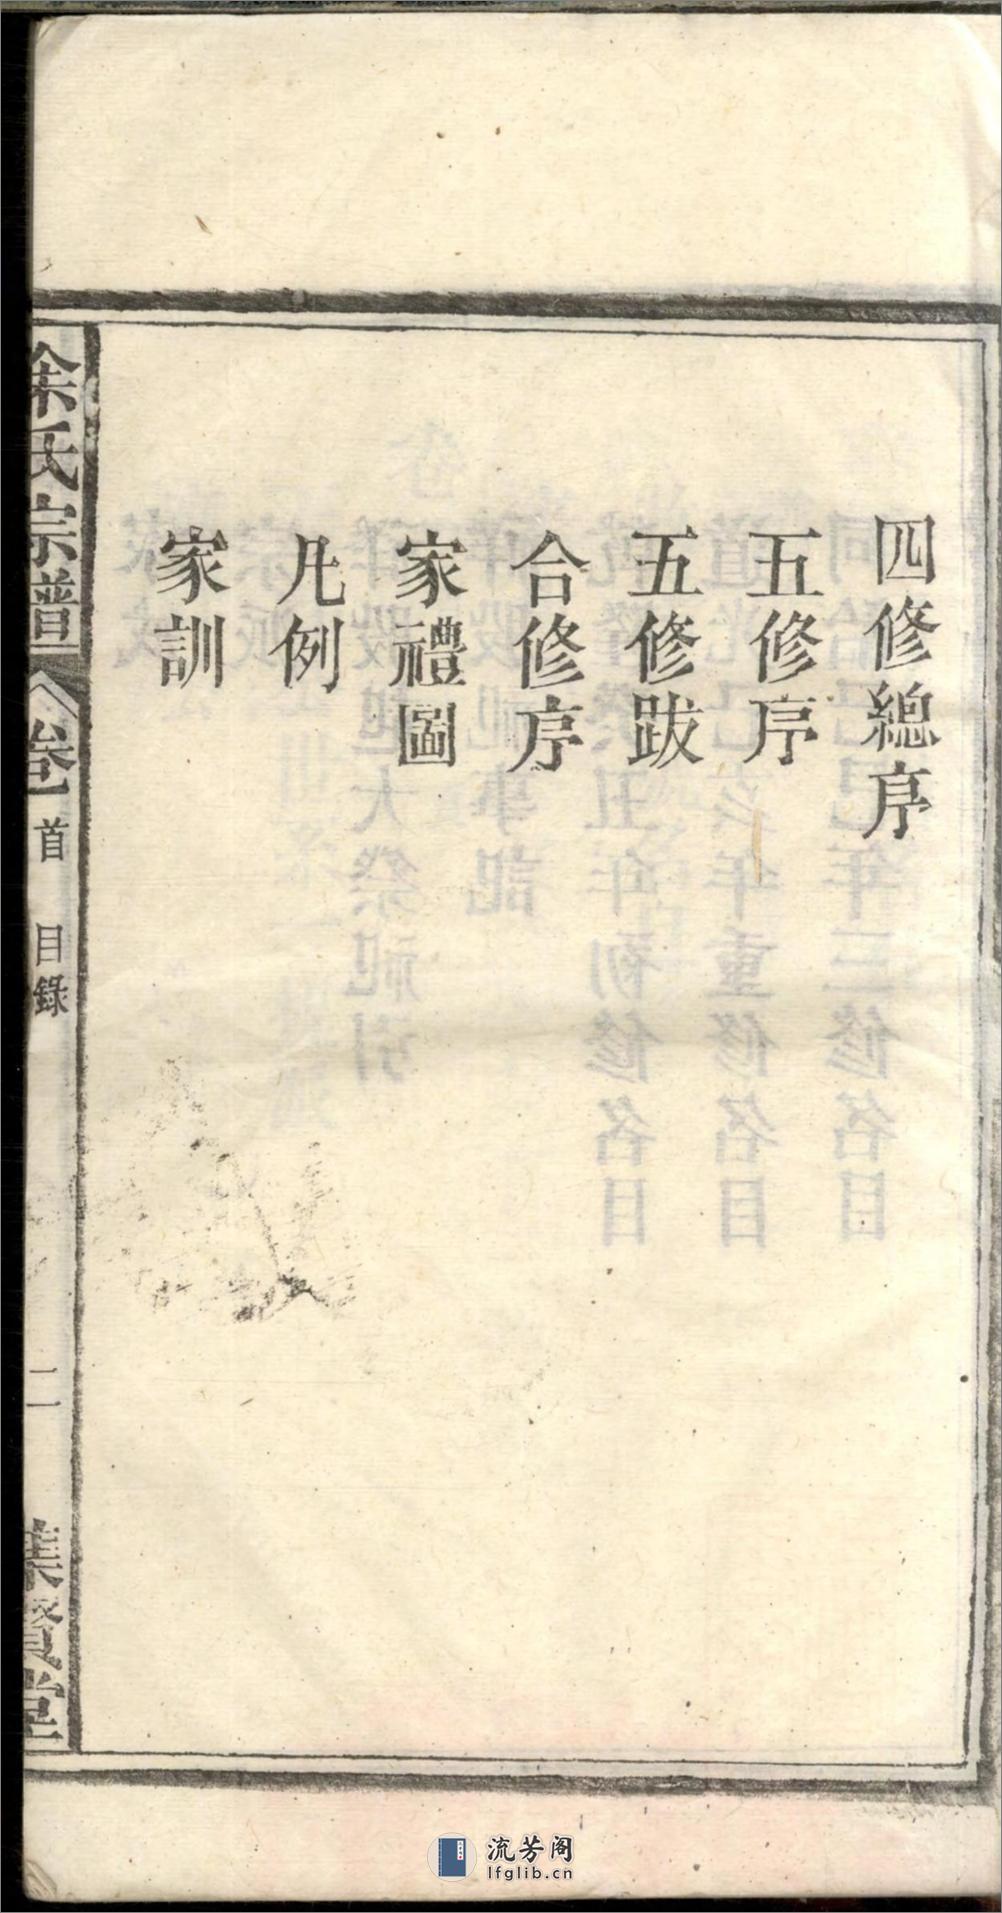 四修總序
五修序
五修跋
合修序
家禮圖
凡例
家訓
氏宗譜
卷首 目錄
二
集賢堂
流芳阁
lfglib.cn